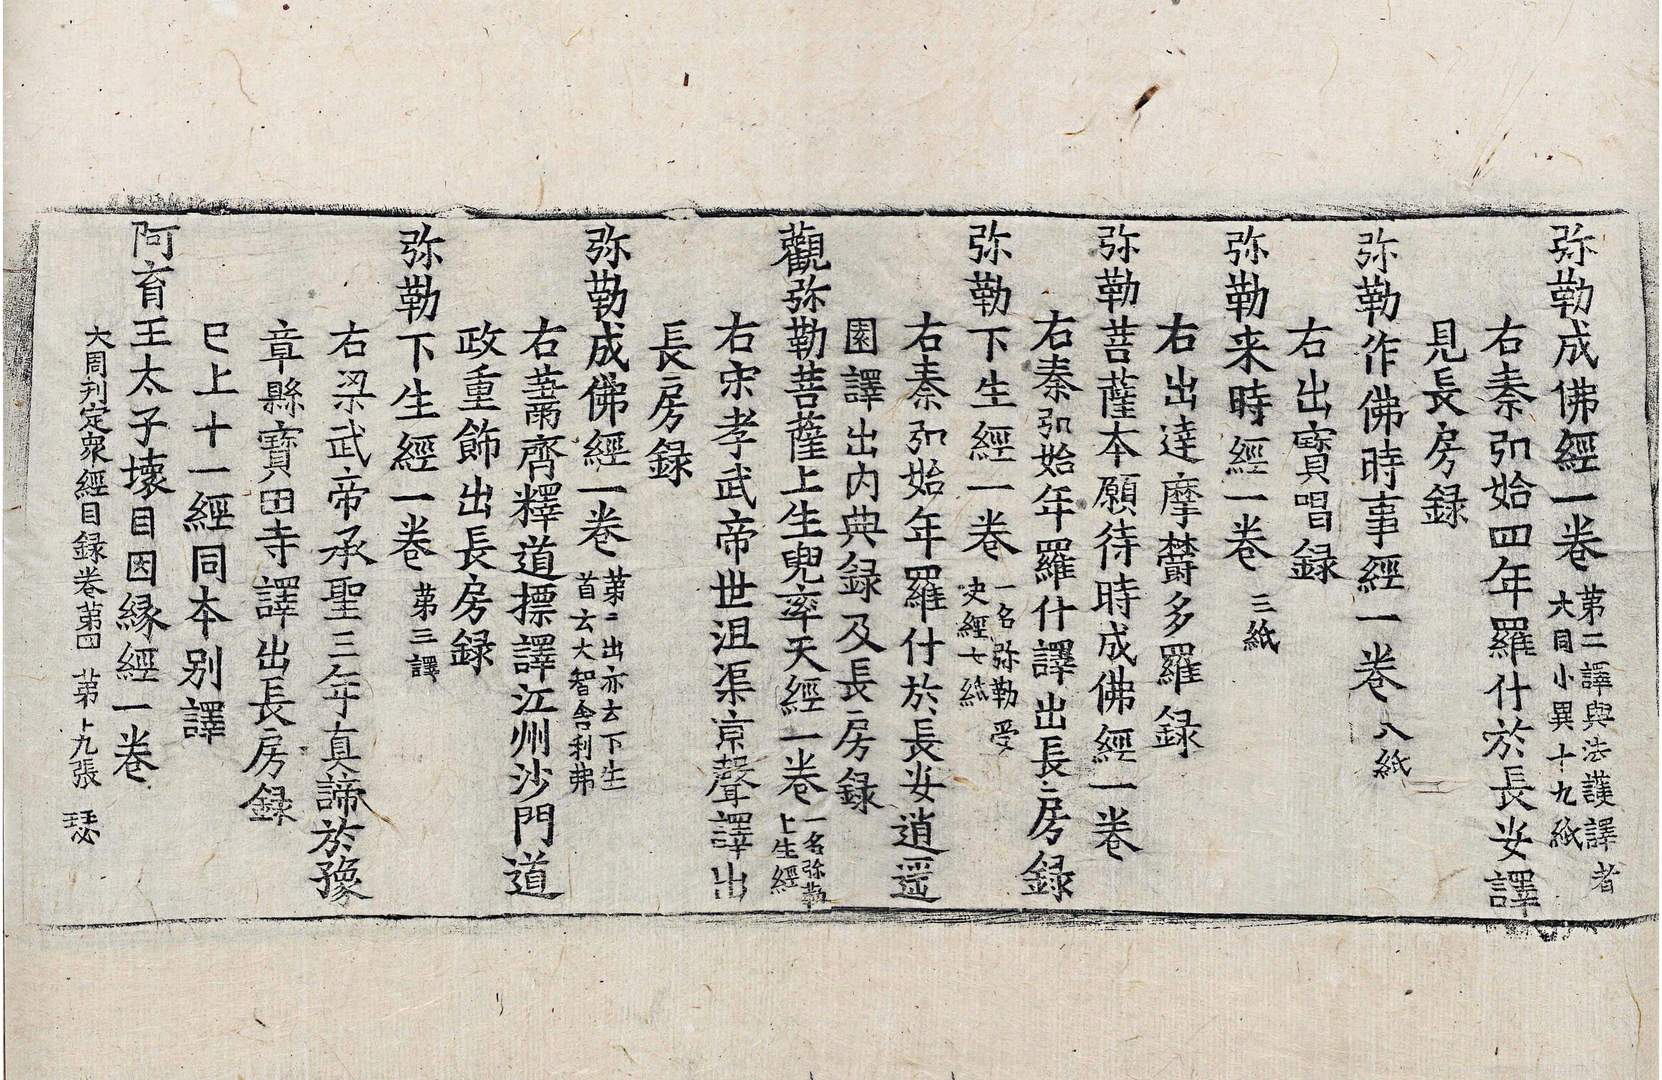 弥勒成佛經一卷 第二譯與法護譯者大同小異十九紙
右秦弘始四年羅什於長安譯
見長房録
弥勒作佛時事經一卷 八紙
右出寶唱録
弥勒来時經一卷 三紙
右出達摩欝多羅録
弥勒菩薩本願待時成佛經一卷
右秦弘始年羅什譯出長房録
弥勒下生經一卷 一名弥勒受决經七紙
右秦弘始年羅什於長安逍遥
園譯出内典録及長房録
觀弥勒菩薩上生兜率天經一卷 一名弥勒上生經
右宋孝武帝世沮渠京聲譯出
長房録
弥勒成佛經一卷 第二出亦云下生首云大智舍利弗
右蕭齊釋道摽譯江州沙門道
政重飾出長房録
弥勒下生經一卷 第三譯
右梁武帝承聖三年真諦於豫
章縣寶田寺譯出長房録
巳上十一經同本别譯
阿育王太子壞目因縁經一卷
大周刋定衆經目録卷第四 第十九張 瑟